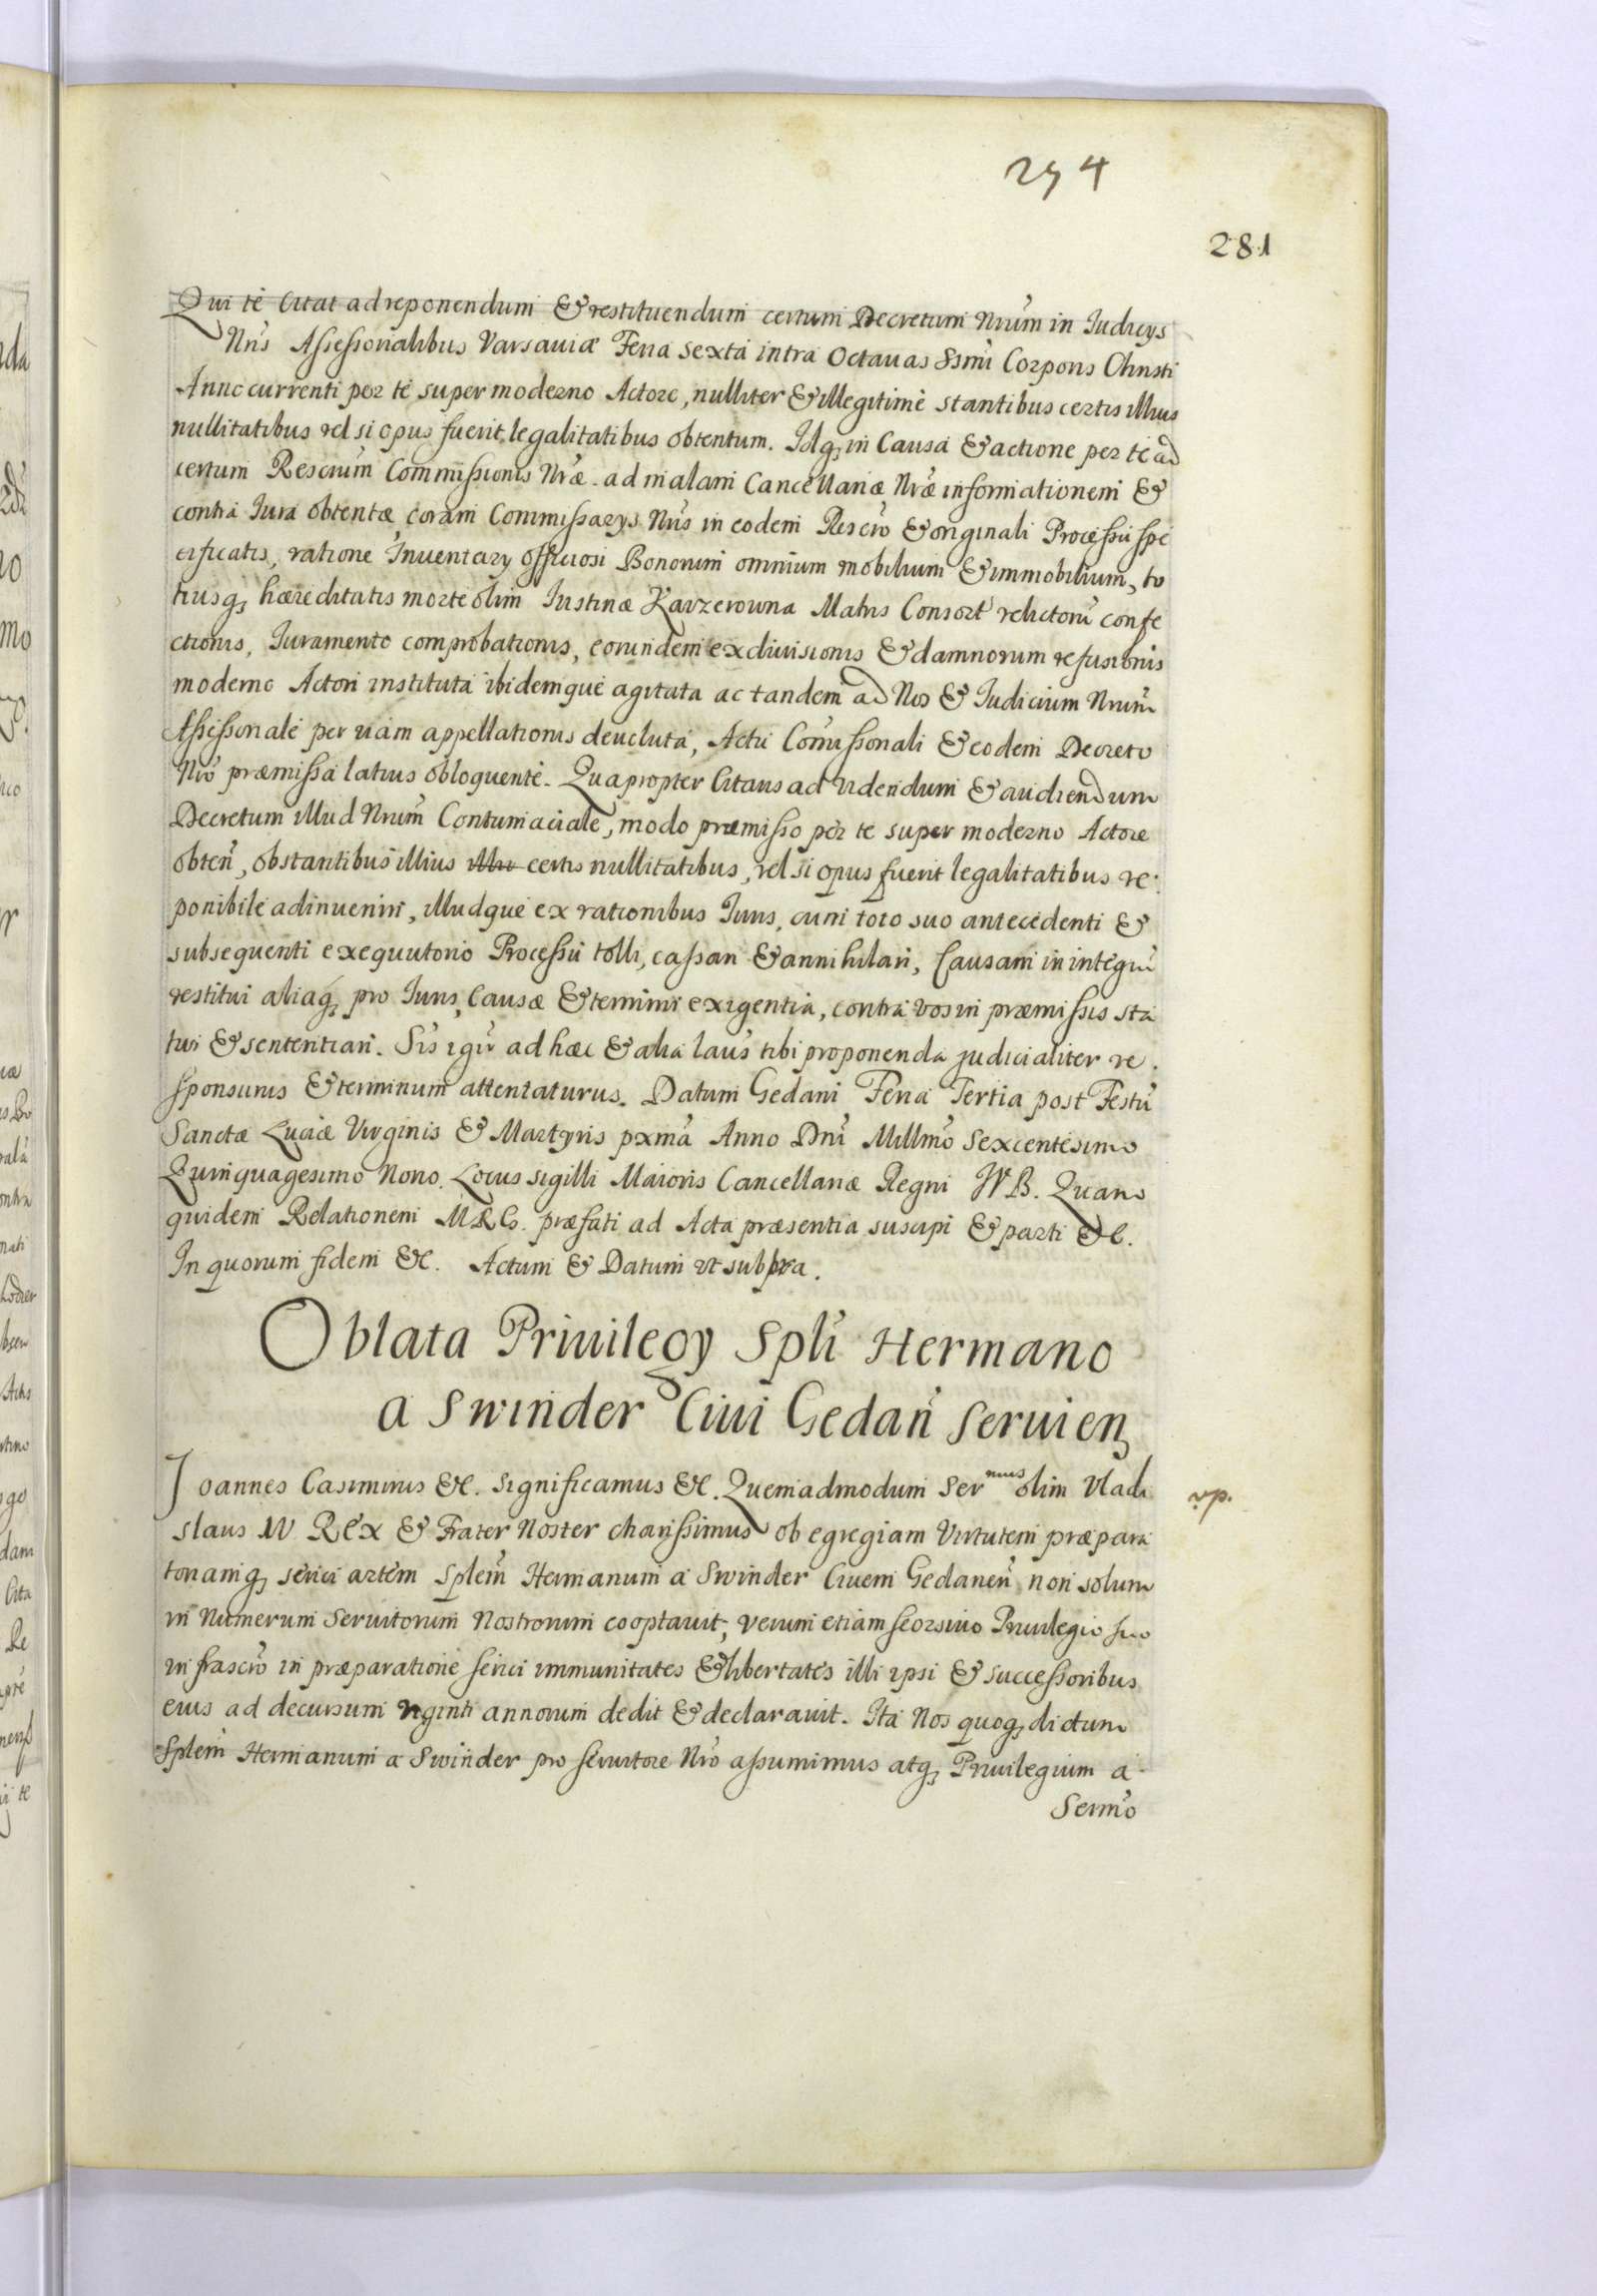 294
281
Qui te Citat ad reponendum & restituendum certum Decretum Nrum in Iudicys
Nris Assessorialibus Varsaviæ Feria sexta intra Octavas Ssmi Corporis Christi
Anno currenti per te super moderno Actore, nulliter & illegitimè stantibus certis illius
nullitatibus vel si opus fuerit, legalitatibus obtentum. Idq, in Causa & actione per te ad
certum Rescrium Commissionis Nræ. ad malam Cancellariæ Nræ informationem &
contra Iura obtentæ coram Commissarys Nris in eodem Rescro & originali Processu spe
cificatis, ratione Inventary officiosi Bonorum omnium mobilium & immobilium, to
tiusq, hæreditatis morte olim Iustinæ Karzerowna Matris Consort relictoru confe
ctionis, Iuramento comprobationis, eorundem exdivisionis & damnorum refusionis
moderno Actori instituta ibidemque agitata ac tandem ad Nos & Iudicium Nrum
Assessoriale per viam appellationis devoluta, Actu Comissoriali & eodem Decreto
Nro præmissa latius obloquente. Quapropter Citaris ad videndum & audiendum
Decretum illud Nrum Contumaciale, modo præmisso per te super moderno Actore
obten, obstantibus illius illiu certis nullitatibus, vel si opus fuerit legalitatibus re
ponibile adinveniri, illudque ex rationibus Iuris, cum toto suo antecedenti &
subsequenti exequutorio Processu tolli, cassari & annihilari, Causam in integru
restitui aliaq, pro Iuris, Causæ & termini exigentia, contra vos in præmissis sta
tui & sententiari. Sis igr ad hæc & alia latius tibi proponenda judicialiter re
sponsurus & terminum attentaturus. Datum Gedani Feria Tertia post Festu
Sanctæ Luciæ Virginis & Martyris pxma Anno Dni Millmo Sexcentesimo
Quinquagesimo Nono. Locus sigilli Maioris Cancellariæ Regni WB. Quam
quidem Relationem MRG. præfati ad Acta præsentia suscipi & parti &c.
In quorum fidem &c. Actum & Datum ut supra.
Oblata Privilegy Spli Hermano
a Swinder Civi Gedan servien,
Ioannes Casimirus &c. Significamus &c. Quemadmodum Sermus olim Vladi
vp.
slaus IV Rex & Frater Noster charissimus ob egregiam Virtutem præpara
toriamq, serici artem Splem Hermanum a Swinder Civem Gedanen non solum
in Numerum Servitorum Nostrorum cooptavit, verum etiam seorsivo Privilegio suo
infrascro in præparatione serici immunitates & libertates illi ipsi & successoribus
eius ad decursum viginti annorum dedit & declaravit. Ita Nos quoq, dictum
Splem Hermanum a Swinder pro servitore Nro assumimus atq, Privilegium a
Sermo